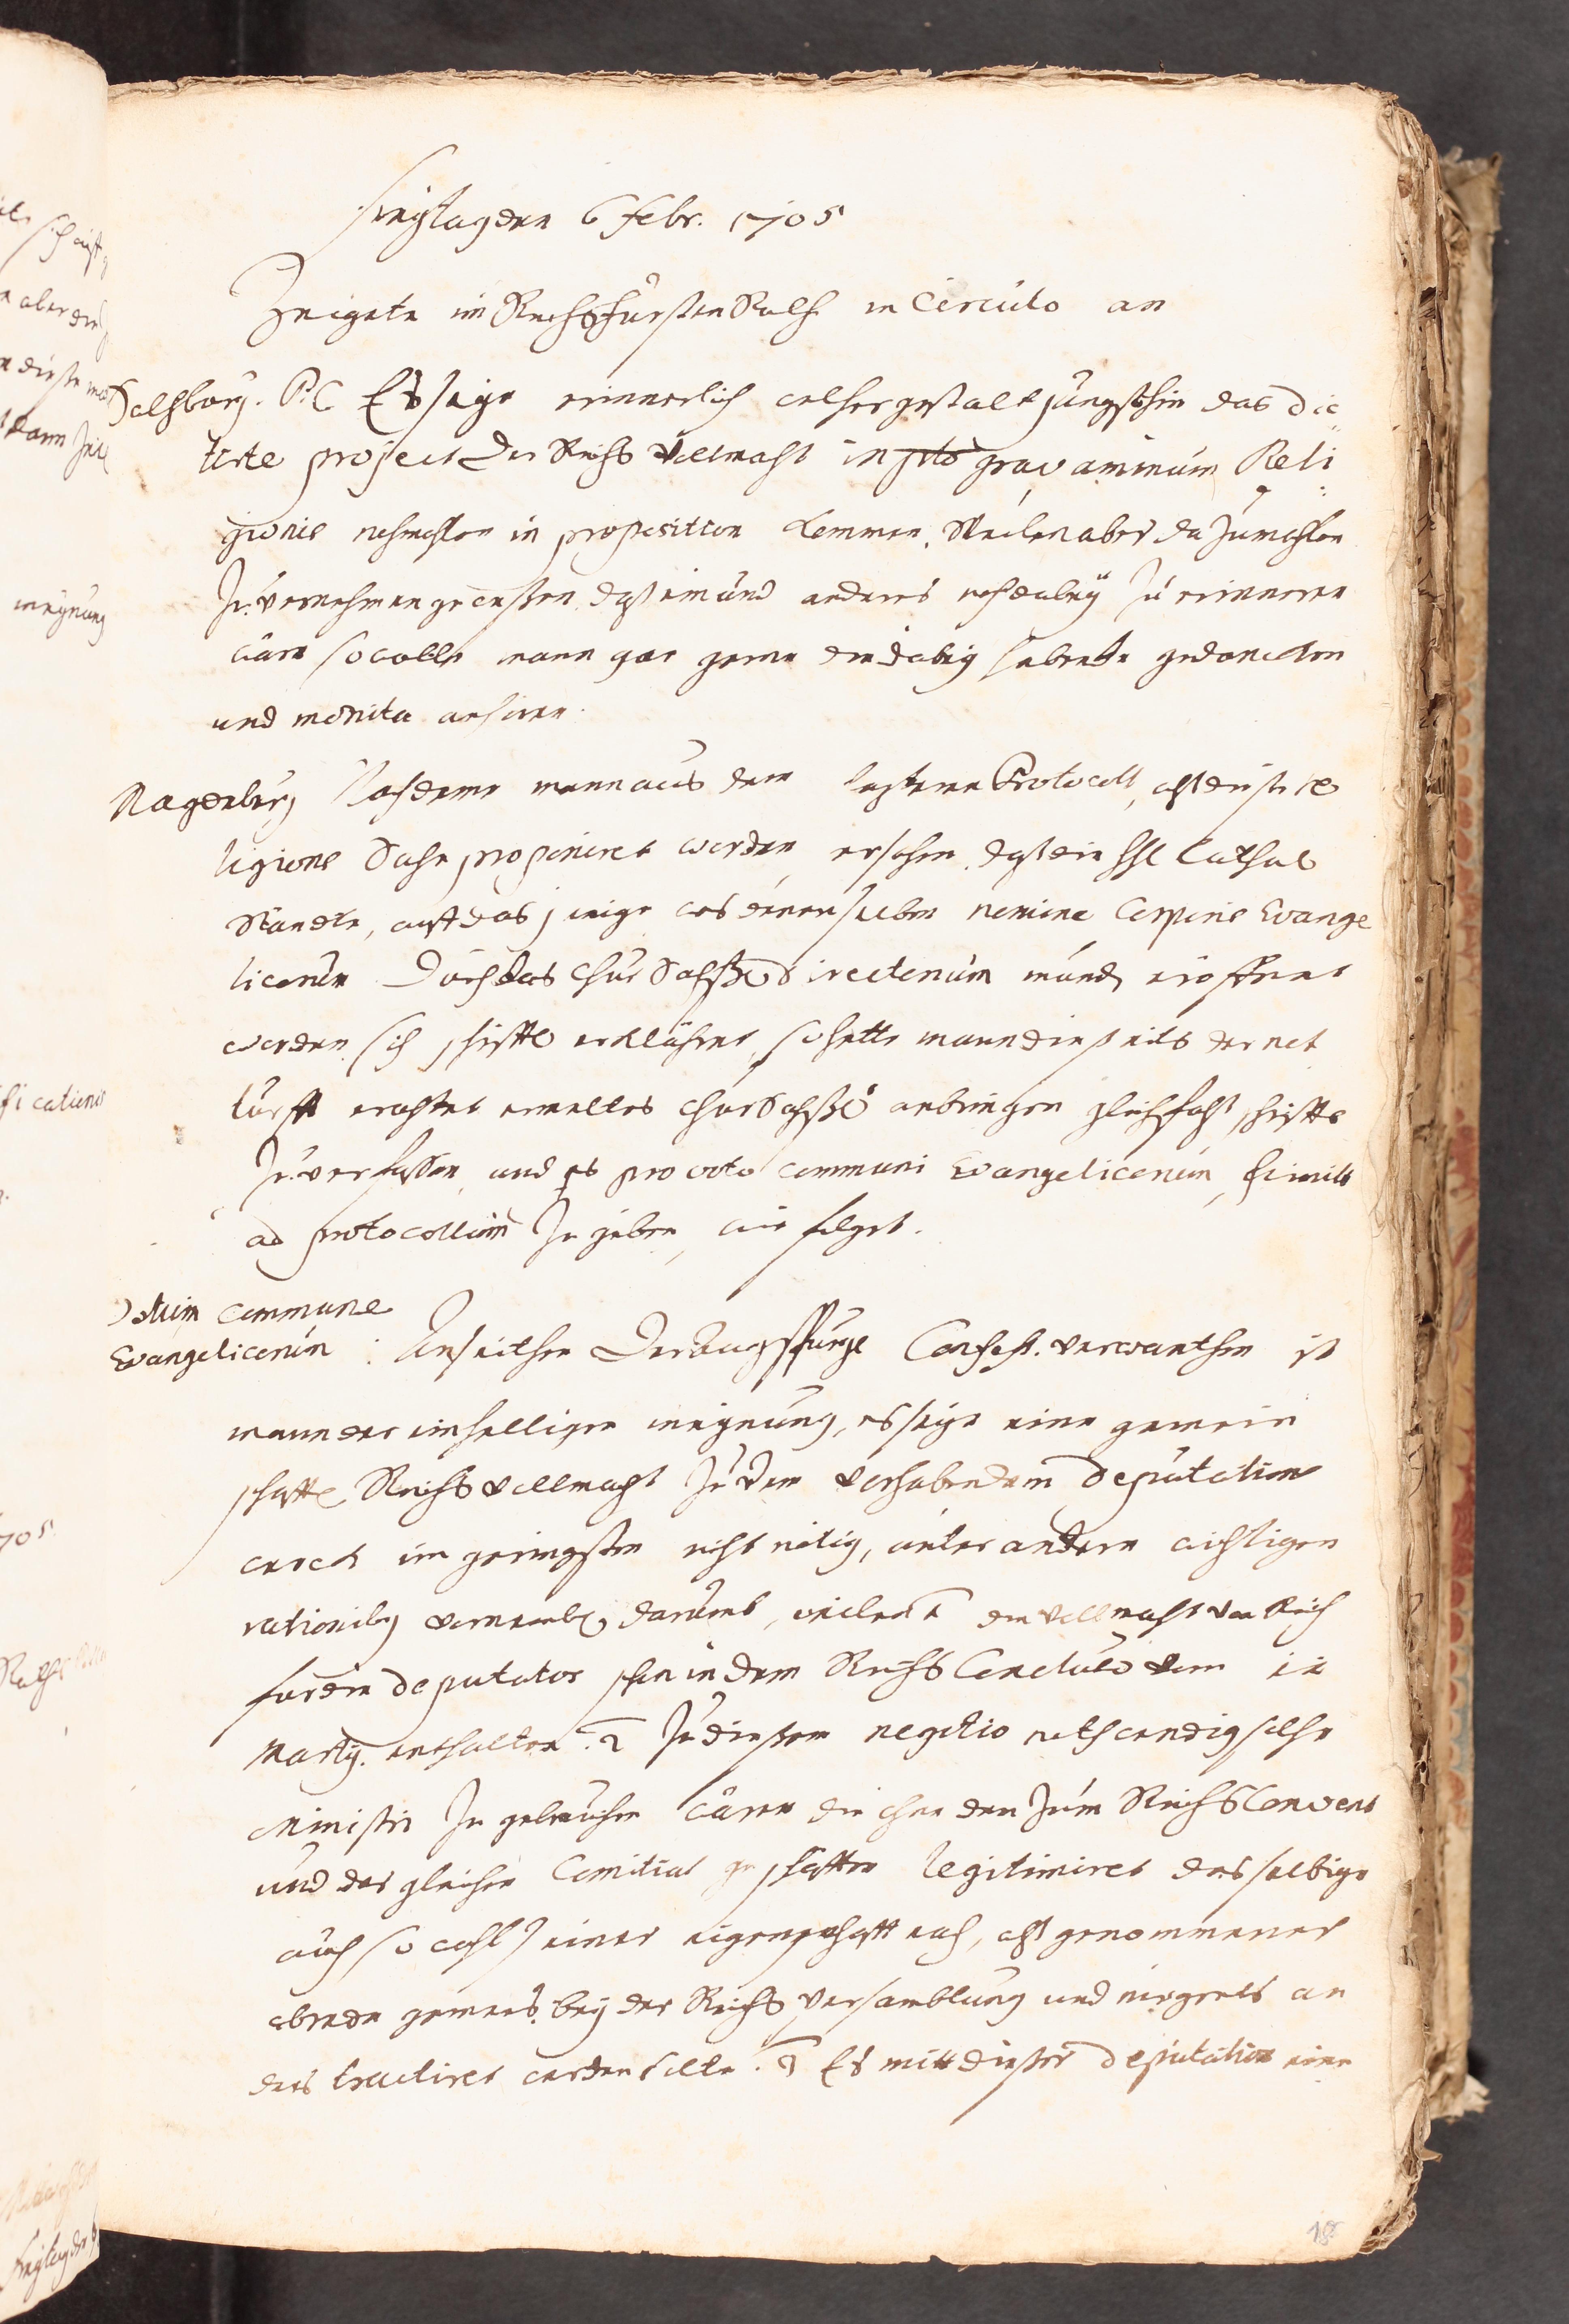 Freÿtag den 6 Febr. 1705
Zeigete im ReichsfürstenRath in Circulo an
Saltzburg. P.C Es seÿe erinnerlich welcher gestalt jüngsthin das dic
tirte project der Reichs Vollmacht in pto gravaminum Reli
gionis nechsten in proposition kommen, Weilen aber dazumahlen
zu vernehmen gewesen, daß ein und anders noch dabeÿ zu erinneren
wäre so wolle mann gar gerne die dabeÿ habende gedancken
und monita anhören.
Magdeburg Nachdeme mann aus dem letztern Protocoll, alß diese Re
ligions Sache proponiret worden, ersehen, daß die H.H. Cathol.
Stände, auf das jenige was denenselben nomine Corporis Evange
licorum durch das Chur Sächß. Directorium mündl. eröffnet
worden, sich schrifftl. erklähret, so hette mann dieseits der not
turfft erachtet ermeltes ChurSächß. anbringen gleichfalß schrifftl.
zu verfassen, und es pro voto communi Evangelicorum, hiemit
ad protocollum zu geben, wie folget.
Votum commune
Evangelicorum : An seithen der Augspurg. Confess. verwanthen ist
mann der einhelligen meÿnung, es seÿe eine gemein
schafftl. Reichs Vollmacht zu dem vorhabendem deputations
werck im geringsten nicht nötig, unter andern wichtigen
rationibus vornembl. darumb, weilen 1 die Vollmacht vom Reich
für die deputatos schon in dem Reichs Concluso vom 12
Martÿ. enthalten. 2 zu diesem negotio nothwendig solche
Ministri zu gebrauchen wären die ohne dem zum ReichsConvent
und der gleichen Comitial geschäfften legitimiret das selbige
auch so wohl seiner eigenschafft nach, alß genommener
abrede gemees. beÿ der Reichs Versamblung und nirgents an
ders tractiret werden solte. 3 Es mit dieser deputation eine